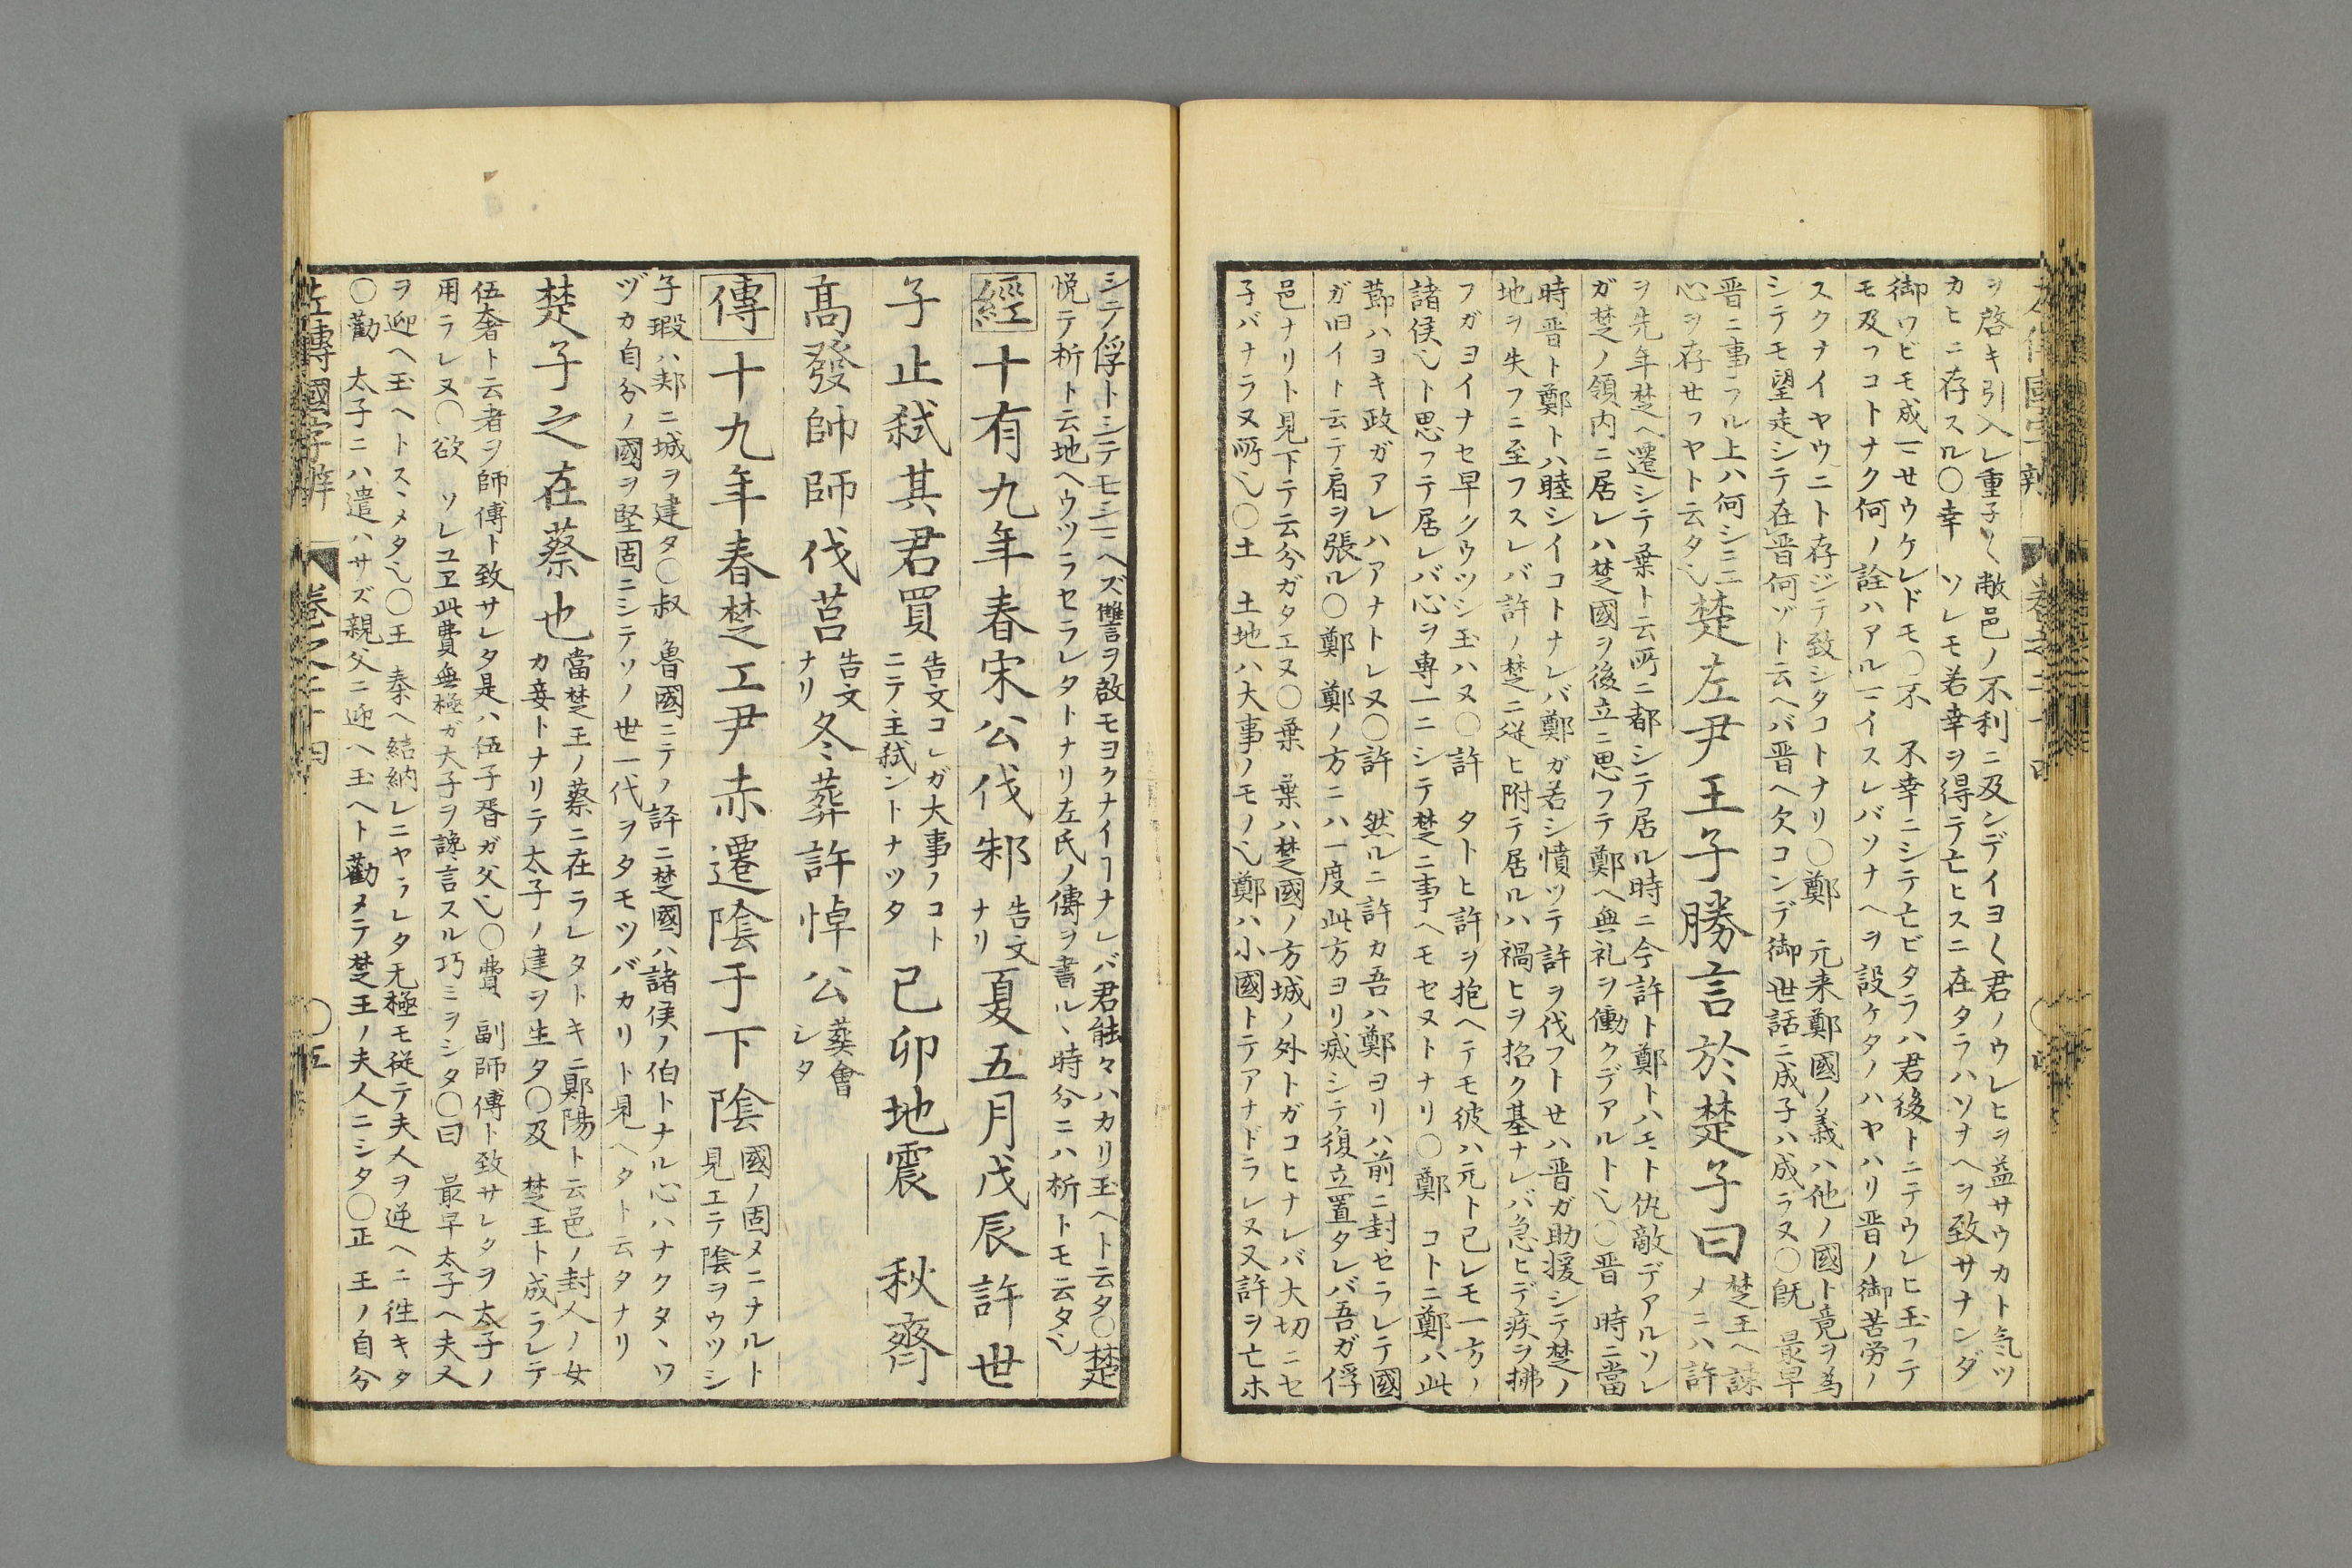 ヲ啓キ引入レ重子〱敝邑ノ不利ニ及ンデイヨ〱君ノウレヒヲ益サウカト気ツ
カヒニ存スル〇幸 ソレモ若幸ヲ得テ亡ヒスニ在タラハソナヘヲ致サナンダ
御ワビモ成ヿニサウケレドモ〇不 不幸ニシテ亡ビタラハ君後トニテウレヒ玉フテ
モ及フコトナク何ノ詮ハアルヿニイスレバソナヘヲ設ケタノハヤハリ晋ノ御苦労ノ
スクナイヤウニト存ジテ致シタコトナリ〇鄭 元来鄭國ノ義ハ他ノ國ト竟ヲ為
シテモ望走シテ在晋何ゾト云ヘバ晋ヘ欠コンデ御世話ニ成子ハ成ラヌ〇既 最早
晋ニ事フル上ハ何シニ二
心ヲ存セフヤト云タ乀
楚左尹王子勝言於楚子曰
楚王ヘ諌
メニハ許
ヲ先年楚ヘ遷シテ葉ト云所ニ都シテ居ル時ニ今許ト鄭トハ互ト仇敵デアルソレ
ガ楚ノ領内ニ居レハ楚國ヲ後立ニ思フテ鄭ヘ無礼ヲ働クデアルト乀〇晋 時ニ當
時晋ト鄭トハ睦シイコトナレバ鄭ガ若シ憤ツテ許ヲ伐フトセハ晋ガ助援シテ楚ノ
地ヲ失フニ至フスレバ許ノ楚ニ従ヒ附テ居ルハ禍ヒヲ招ク基ナレバ急ヒデ疾ヲ拂
フガヨイナセ早クウツシ玉ハヌ〇許 タトヒ許ヲ抱ヘテモ彼ハ元ト已レモ一方ノ
諸侯乀ト思フテ居レバ心ヲ専一ニシテ楚ニ事ヘモセヌトナリ〇鄭 コトニ鄭ハ此
節ハヨキ政ガアレハアナトレヌ〇許 然ルニ許カ吾ハ鄭ヨリハ前ニ封セラレテ國
ガ旧イト云テ肩ヲ張ル〇鄭 鄭ノ方ニハ一度此方ヨリ滅シテ復立置タレバ吾ガ俘
邑ナリト見下テ云分ガタエヌ〇葉 葉ハ楚國ノ方城ノ外トガコヒナレバ大切ニセ
子バナラヌ所乀〇土 土地ハ大事ノモノ乀鄭ハ小國トテアナドラレヌ又許ヲ亡ホ
シテ俘トシテモシヿヘズ讐ヲ啟モヨクナイヿナレバ君能々ハカリ玉ヘト云タ〇楚
悦テ析ト云地ヘウツラセラレタトナリ左氏ノ傳ヲ書ル丶時分ニハ析トモ云タ乀
經十有九年春宋公伐邾
告文
ナリ
夏五月戊辰許世
子止弑其君買
告文コレガ大事ノコト
ニテ主弑ントナツタ
己卯地震 秋齊
髙發帥師伐莒
告文
ナリ
冬葬許悼公
葬會
シタ
傳十九年春楚工尹赤遷陰于下陰
國ノ固メニナルト
見エテ陰ヲウツシ
子瑕ハ郟ニ城ヲ建タ〇叔 魯國ニテノ評ニ楚國ハ諸侯ノ伯トナル心ハナクタ丶ワ
ヅカ自分ノ國ヲ堅固ニシテソノ世一代ヲタモツバカリト見ヘタト云タナリ
楚子之在蔡也
當楚王ノ蔡ニ在ラレタトキニ郹陽ト云邑ノ封人ノ女
カ妾トナリテ太子ノ建ヲ生タ〇及 楚王ト成ラレテ
伍奢ト云者ヲ師傅ト致サレタ是ハ伍子胥ガ父乀〇費 副師傅ト致サレタヲ太子ノ
用ラレヌ〇欲 ソレユヱ此費無極ガ大子ヲ讒言スル巧ミヲシタ〇曰 最早太子ヘ夫人
ヲ迎ヘ玉ヘトス丶メタ乀〇王 秦ヘ結納レニヤラレタ无極モ従テ夫人ヲ逆ヘニ徃キタ
〇勸 太子ニハ遣ハサズ親父ニ迎ヘ玉ヘト勸メテ楚王ノ夫人ニシタ〇正 王ノ自分
左傳國字辯 卷之二十四 〇五